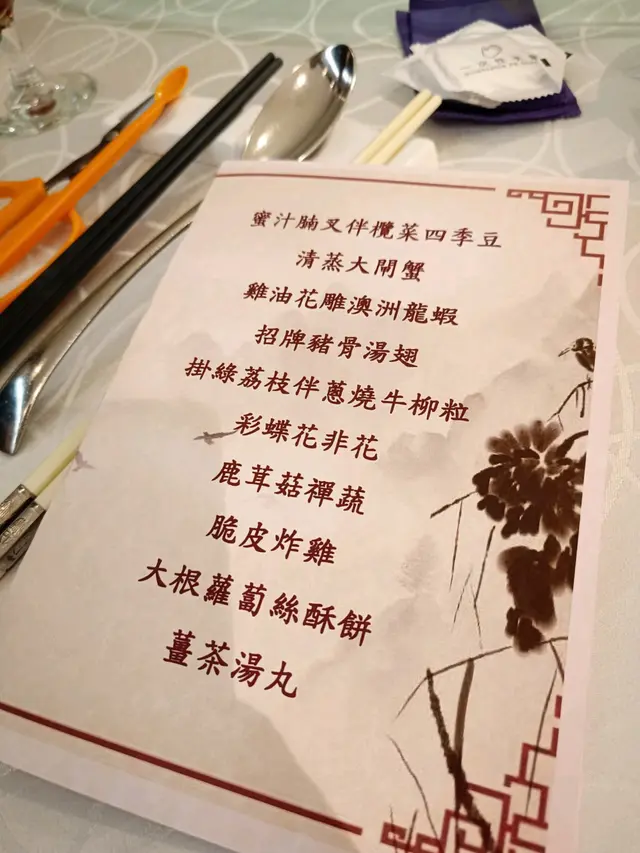 蜜汁腩叉伴欖菜四季豆
清蒸大閘蟹
雞油花雕澳洲龍蝦
招牌豬骨湯翅
掛綠荔枝伴蔥燒牛柳粒
彩蝶花非花
鹿茸菇禪蔬
脆皮炸雞
大根蘿蔔絲酥餅
薑茶湯丸